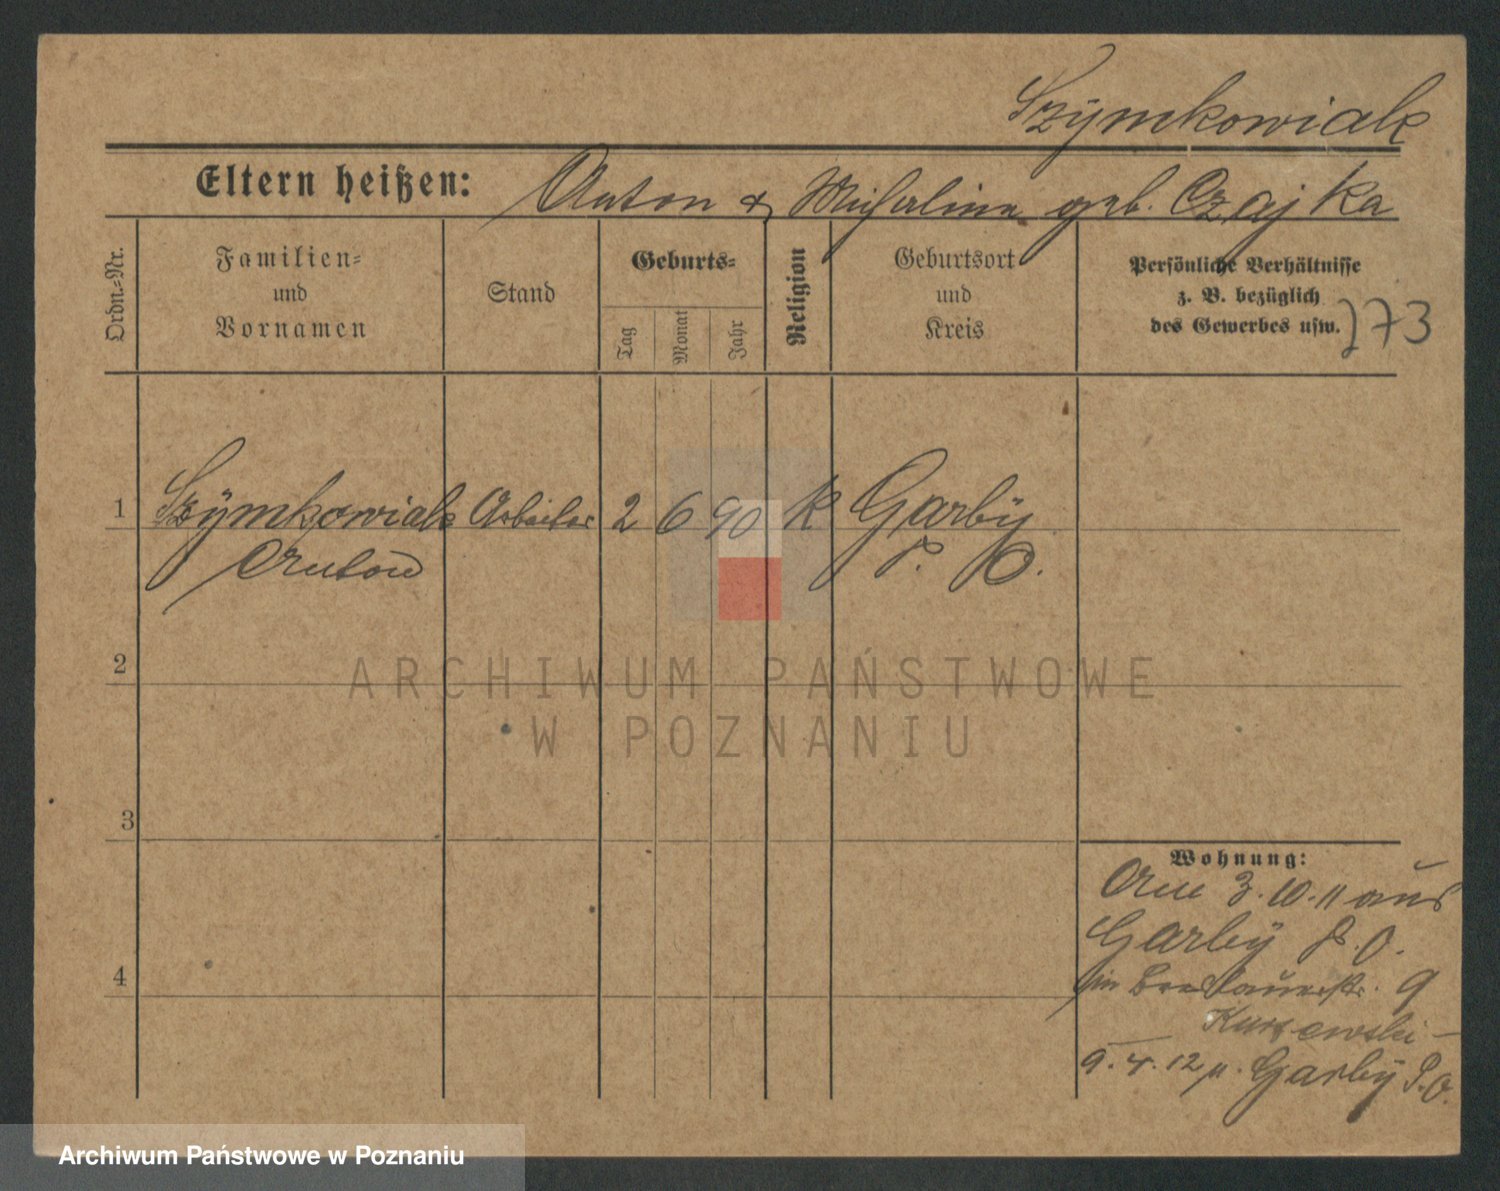 Szymkowiak
Eltern heißen: Anton & Michalina geb. Czajka
Ordn.-Nr.
Familien-
und
Vornamen
Stand
Geburts-
Tag
Monat
Jahr
Religion
Geburtsort
und
Kreis
Persönliche Verhältnisse
z. B. bezüglich
des Gewerbes usw.
273
1 Szymkowiak Arbeiter 2 6 90 K Garbÿ
Anton P. O.
2
ARCHIWUM PAŃSTWOWE
W POZNANIU
3
Wohnung:
Am 3.10.11 aus
Garbÿ P. O.
4
in Breslauerstr. 9
9.4.12 n. Garbÿ P.O.
Archiwum Państwowe w Poznaniu